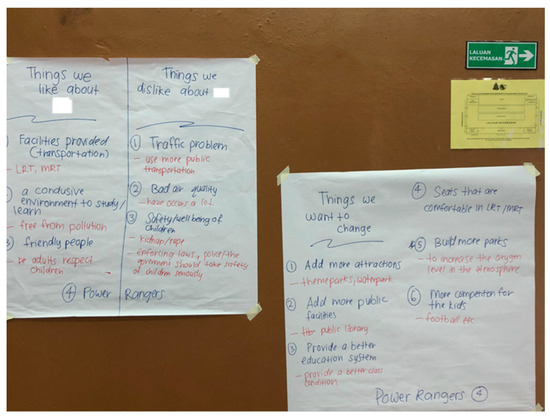 Things we
like about
Facilities provided
(transportation)
- LRT, MRT
2 a condusive
environment to study/
learn
- free from pollution
3 friendly people
adults respect
children
Things we
dislike about
1 Traffic problem
- use more public
transportation
2 Bad air quality
- have occurs a lot
3 Safety/well being of
children
- kidnap/rape
- enforcing laws, police/the
goverment should take safety
of children seriously
4 Power Rangers
LALUAN
KECEMASAN
Things we
want to
change
1 Add more attractions
- themeparks, waterpark
2 Add more public
facilities
- public library
3 Provide a better
education system
- provide a better class
condition
4 Seats that are
comfortable in LRT/MRT
5 Build more parks
- to increase the oxygen
level in the atmosphere
6 More competition for
the kids
- football etc
Power Rangers 4